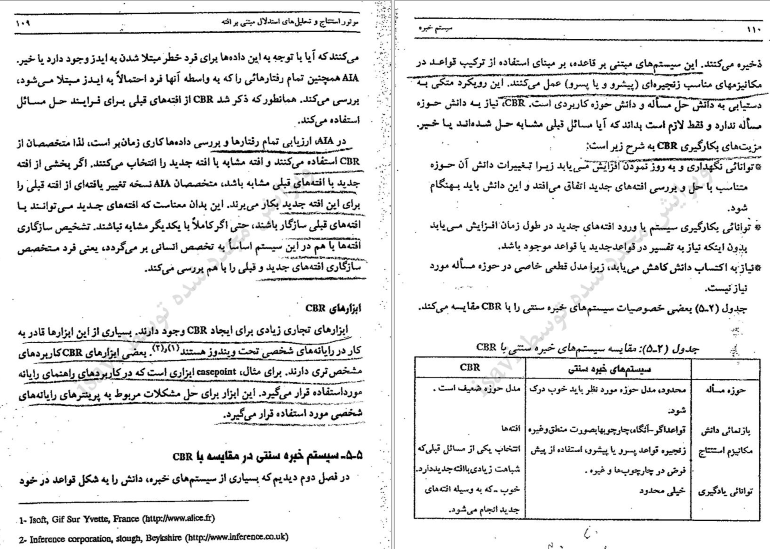 موتور استنتاج و تحلیل‌های استدلال مبتنی بر افته ۱۰۹
می‌کنند که آیا با توجه به این داده‌ها برای فرد خطر مبتلا شدن به ایدز وجود دارد یا خیر.
AIA همچنین تمام رفتارهائی را که به واسطه آنها فرد احتمالاً به ایدز مبتلا می‌شود،
بررسی می‌کند. همانطور که ذکر شد CBR از افته‌های قبلی برای فرایند حل مسائل
استفاده می‌کند.
در AIA، ارزیابی تمام رفتارها و بررسی داده‌ها کاری زمان‌بر است، لذا متخصصان از
CBR استفاده می‌کنند و افته مشابه با افته جدید را انتخاب می‌کنند. اگر بخشی از افته
جدید با افته‌های قبلی مشابه باشد، متخصصان AIA نسخه تغییر یافته‌ای از افته قبلی را
برای این افته جدید بکار می‌برند. این بدان معناست که افته‌های جدید می‌توانند با
افته‌های قبلی سازگار باشند، حتی اگر کاملاً با یکدیگر مشابه نباشند. تشخیص سازگاری
افته‌ها با هم در این سیستم اساساً به تخصص انسانی بر می‌گردد، یعنی فرد متخصص
سازگاری افته‌های جدید و قبلی را با هم بررسی می‌کند.
ابزارهای CBR
ابزارهای تجاری زیادی برای ایجاد CBR وجود دارند. بسیاری از این ابزارها قادر به
کار در رایانه‌های شخصی تحت ویندوز هستند (۱)و(۲). بعضی ابزارهای CBR کاربردهای
مشخص تری دارند. برای مثال، casepoint ابزاری است که در کاربردهای راهنمای رایانه
مورد استفاده قرار می‌گیرد. این ابزار برای حل مشکلات مربوط به پرینترهای رایانه‌های
شخصی مورد استفاده قرار می‌گیرد.
۵-۵- سیستم خبره سنتی در مقایسه با CBR
در فصل دوم دیدیم که بسیاری از سیستم‌های خبره، دانش را به شکل قواعد در خود
1- Isoft, Gif Sur Yvette, France (http://www.alice.fr)
2- Inference corporation, slough, Beykshire (http://www.inference.co.uk)
۱۱۰ سیستم خبره
ذخیره می‌کنند. این سیستم‌های مبتنی بر قاعده، بر مبنای استفاده از ترکیب قواعد در
مکانیزمهای مناسب زنجیره‌ای (پیشرو و یا پسرو) عمل می‌کنند. این رویکرد متکی به
دستیابی به دانش حل مسأله و دانش حوزه کاربردی است. CBR، نیاز به دانش حوزه
مسأله ندارد و فقط لازم است بداند که آیا مسائل قبلی مشابه حل شده‌اند یا خیر.
مزیت‌های بکارگیری CBR به شرح زیر است:
* توانائی نگهداری و به روز نمودن افزایش می‌یابد زیرا تغییرات دانش آن حوزه
متناسب با حل و بررسی افته‌های جدید اتفاق می‌افتد و این دانش باید بهنگام
شود.
* توانائی بکارگیری سیستم با ورود افته‌های جدید در طول زمان افزایش می‌یابد
بدون اینکه نیاز به تفسیر در قواعد جدید یا قواعد موجود باشد.
* نیاز به اکتساب دانش کاهش می‌یابد، زیرا مدل قطعی خاصی در حوزه مسأله مورد
نیاز نیست.
جدول (۲-۵) بعضی خصوصیات سیستم‌های خبره سنتی را با CBR مقایسه می‌کند.
جدول (۲-۵): مقایسه سیستم‌های خبره سنتی با CBR
سیستم‌های خبره سنتی CBR
حوزه مسأله محدود، مدل حوزه مورد نظر باید خوب درک مدل حوزه ضعیف است.
شود.
بازنمائی دانش قواعد اگر-آنگاه، چارچوبها بصورت منطق و غیره افته‌ها
مکانیزم استنتاج زنجیره قواعد پسرو یا پیشرو، استفاده از پیش انتخاب یکی از مسائل قبلی که
فرض در چارچوب‌ها و غیره. شباهت زیادی با افته جدید دارد.
توانائی یادگیری خیلی محدود خوب - که به وسیله افته‌های
جدید انجام می‌شود.